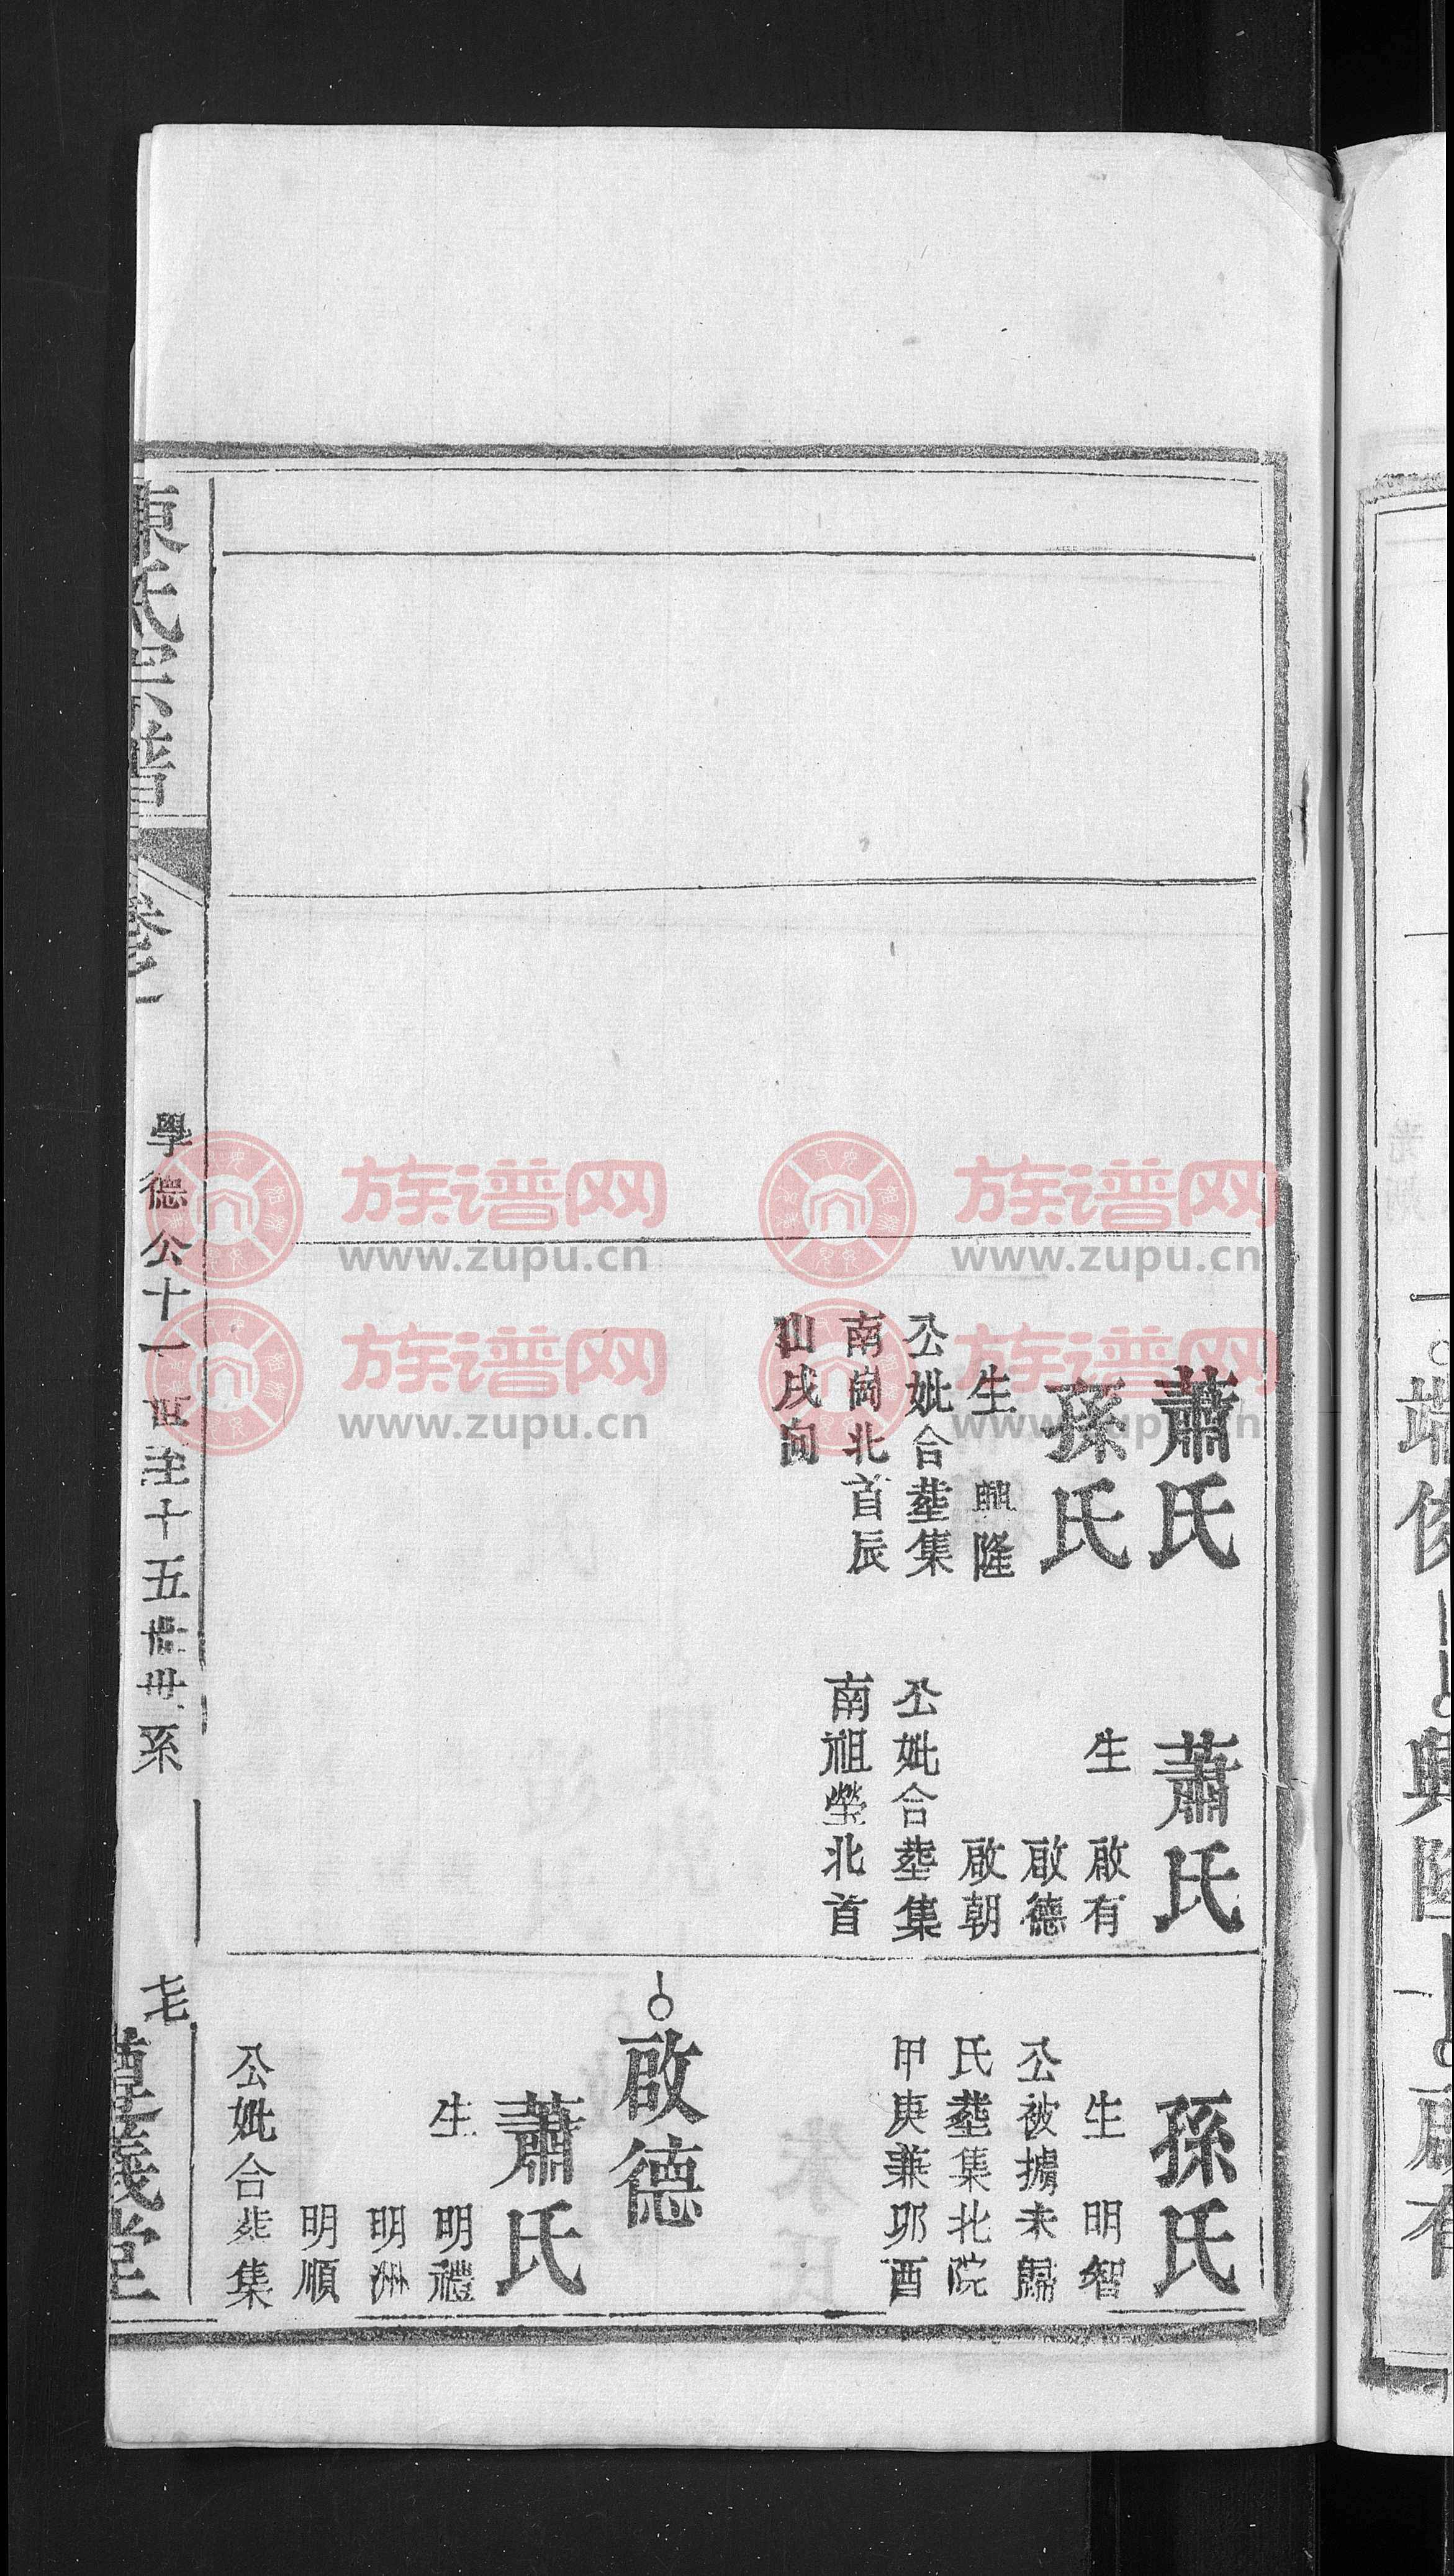 蕭氏
孫氏
生 興隆
公妣合塟集
南崗北首辰
山戌向
蕭氏
生 啟有
啟德
啟朝
公妣合塟集
南祖塋北首
孫氏
生 明智
公被擄未歸
氏塟集北院
甲庚兼卯酉
啟德
蕭氏
生 明禮
明洲
明順
公妣合塟集
陳氏宗譜
卷一
學德公十一世至十五世世系
七
族谱网
www.zupu.cn
族谱网
www.zupu.cn
族谱网
www.zupu.cn
族谱网
www.zupu.cn
端俊
興隆
啟有